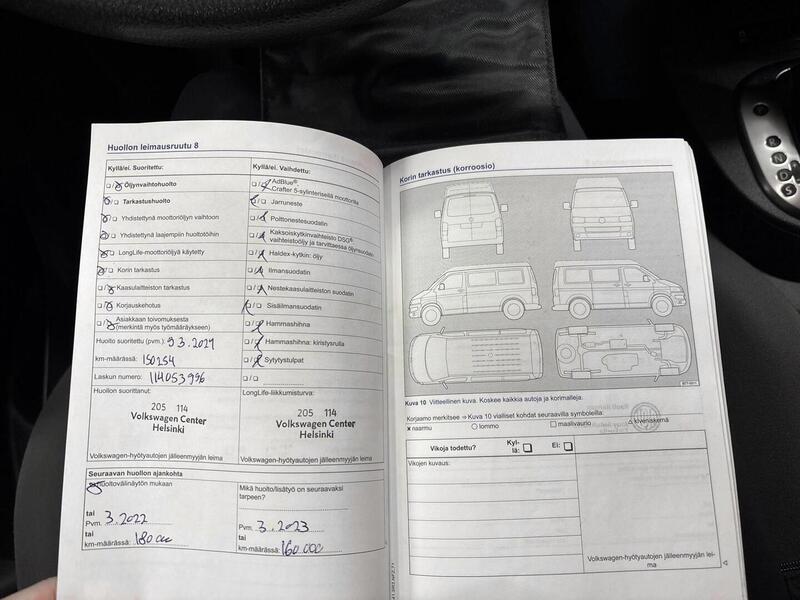 Huollon leimausruutu 8
Kyllä/ei. Suoritettu:
☐/☐ Öljynvaihtohuolto
☐/☐ Tarkastushuolto
☐/☐ Yhdistettynä moottoriöljyn vaihtoon
☐/☐ Yhdistettynä laajempiin huoltotöihin
☐/☐ LongLife-moottoriöljyä käytetty
☐/☐ Korin tarkastus
☐/☐ Kaasulaitteiston tarkastus
☐/☐ Korjauskehotus
☐/☐ Asiakkaan toivomuksesta
(merkintä myös työmääräykseen)
Huolto suoritettu (pvm.):
km-määrässä: 150254
Laskun numero: 114053996
Huollon suorittanut:
205 114
Volkswagen Center
Helsinki
Volkswagen-hyötyautojen jälleenmyyjän leima
Kyllä/ei. Vaihdettu:
☐/☐ AdBlue®
Crafter 5-sylinterisellä moottorilla
☐/☐ Jarruneste
☐/☐ Polttonestesuodatin
☐/☐ Kaksoiskytkinvaihteisto DSG®
vaihteistoöljy ja tarvittaessa öljynsuodatin
☐/☐ Haldex-kytkin: öljy
☐/☐ Ilmansuodatin
☐/☐ Nestekaasulaitteiston suodatin
☐/☐ Sisäilmansuodatin
☐/☐ Hammashihna
☐/☐ Hammashihna: kiristysrulla
☐/☐ Sytytystulpat
☐/☐
LongLife-liikkumisturva:
205 114
Volkswagen Center
Helsinki
Volkswagen-hyötyautojen jälleenmyyjän leima
Seuraavan huollon ajankohta
huoltovälinäytön mukaan
tai
Pvm. 3.2022
tai
km-määrässä: 180 000
Mikä huolto/lisätyö on seuraavaksi
tarpeen?
Pvm. 3.2023
tai
km-määrässä: 160 000
Korin tarkastus (korroosio)
Kuva 10 Viitteellinen kuva. Koskee kaikkia autoja ja korimalleja.
Korjaamo merkitsee ⇒ Kuva 10 vialliset kohdat seuraavilla symboleilla:
x naarmu ○ lommo □ maalivaurio △ kiveniskemä
Vikoja todettu? Kyl-
lä: ☐ Ei: ☐
Vikojen kuvaus:
Volkswagen-hyötyautojen jälleenmyyjän lei-
ma
R
N
D
S